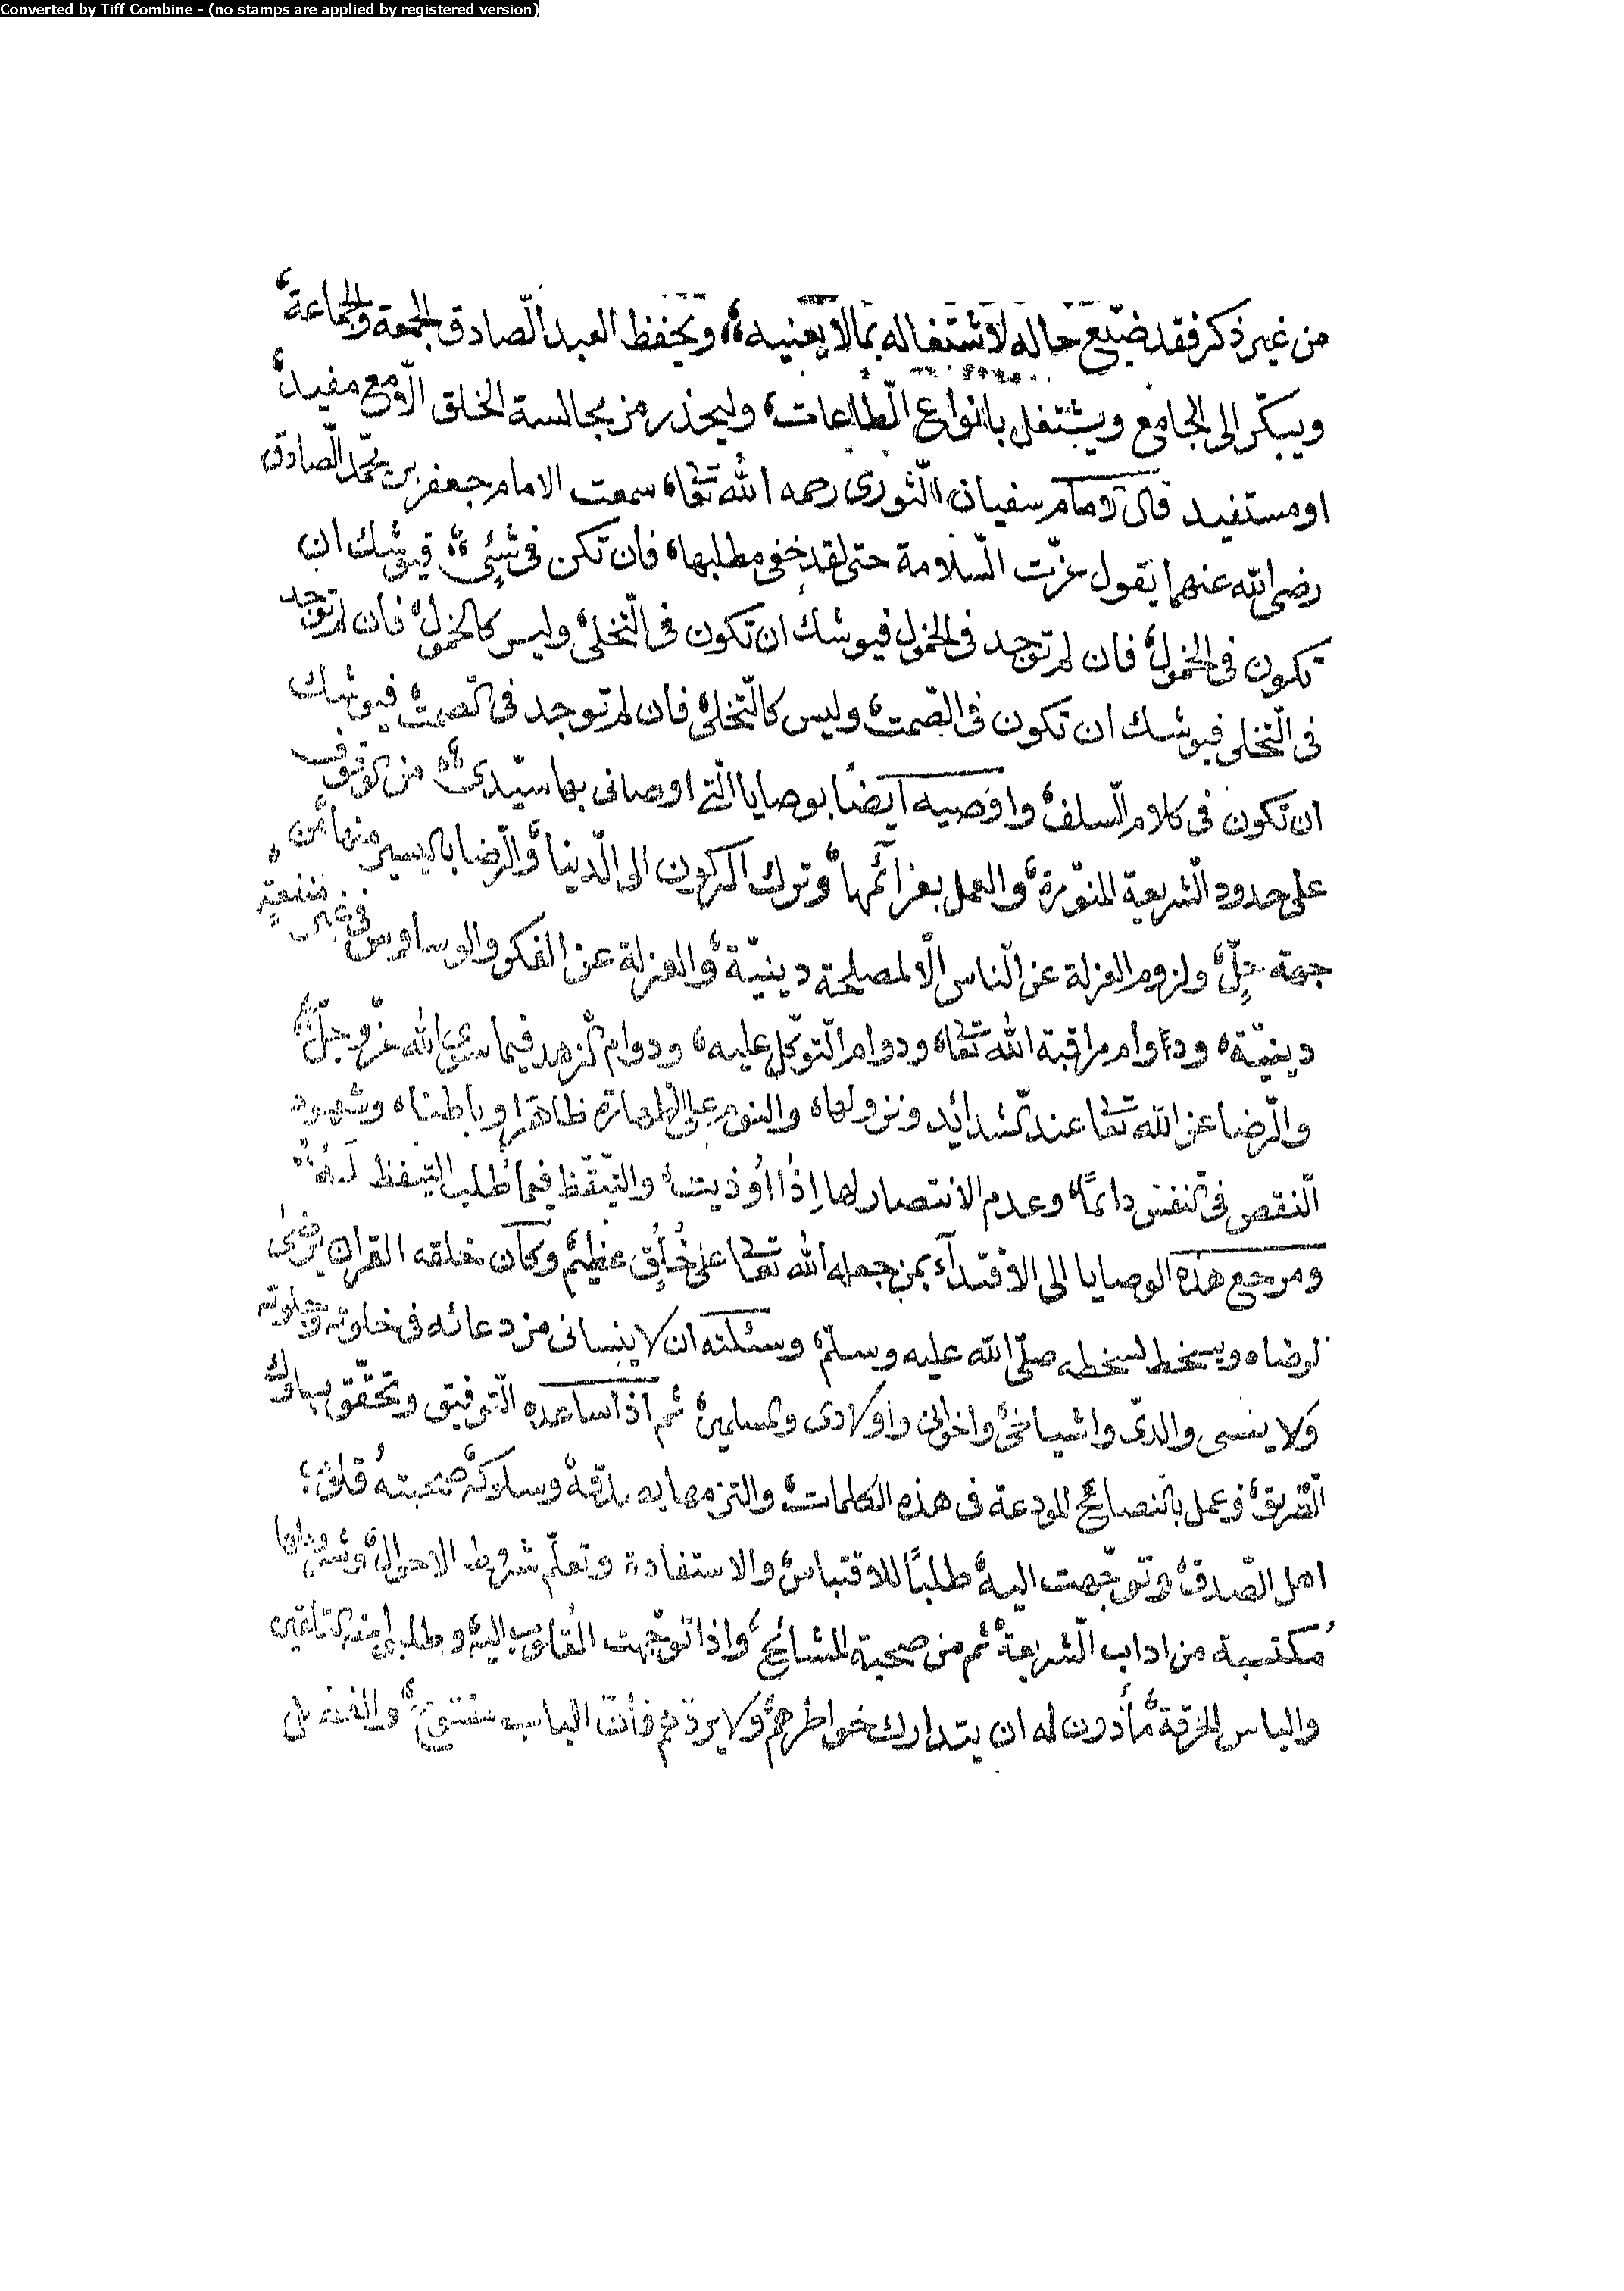 Converted by Tiff Combine - (no stamps are applied by registered version)
من غير ذكر فقد ضيّع حاله لاشتغاله بما لا يعنيه، ويحفظ العبد الصّادق الجمعة والجماعة،
ويبكّر الى الجامع ويشتغل بانواع الطّاعات، وليحذر من مجالسة الخلق الّا مع مفيد،
او مستفيد قال الامام سفيان الثّورى رحمه الله تعا، سمعت الامام جعفر بن محمّد الصّادق
رضى الله عنهما يقول عزّت السّلامة حتى لقد خفى مطلبها، فان تكن فى شئ، فيوشك ان
تكون فى الخمول، فان لم توجد فى الخمول فيوشك ان تكون فى التّخلى، وليس كالخمول، فان لم توجد
فى التّخلى فيوشك ان تكون فى الصّمت، وليس كالتّخلى، فان لم توجد فى الصّمت، فيوشك
ان تكون فى كلام السّلف، واوصيه ايضًا بوصايا الّتى اوصانى بها سيّدى، من الوقوف
على حدود الشّريعة المنوّرة، والعمل بعزائمها، وترك الركون الى الدّنيا، والرّضا باليسير منها من
جهة حلّ، ولزوم العزلة عن النّاس الّا لمصلحة دينيّة، والعزلة عن الفكر والوساوس فى غير
دينيّة، ودوام مراقبة الله تعا، ودوام التّوكّل عليه، ودوام الزهد فيما سوى الله عزّ وجلّ،
والرّضا عن الله تعا عند الشدائد ونزولها، والنوم على الطهارة ظاهرا وباطنا، وشهود
النّقص فى النفس دائمًا، وعدم الانتصار لها اِذا اُوذيت، والتّيقّظ فيما طُلب التيقظ لَهُ،
ومرجع هذه الوصايا الى الاقتدآء بمن جعله الله تعا على خُلُقٍ عظيم، وكان خلقه القران يرضى
لرضاه ويسخط لسخطه صلّى الله عليه وسلّم، وسئلته ان لا ينسانى من دعائه فى خلوته وجلوته
ولا ينسى والدىّ واشياخى، واخوانى واولادى والمسلمين، ثم اذا ساعده التّوفيق وتحقّق بسلوك
الطّريق، وعمل بالنصائح المودعة فى هذه الكلمات، والتزمها به وسلوكه، صحبته قلوب،
اهل الصّدق، وتوجّهت اليه، طلبًا للاقتباس، والاستفادة وتعلّم شروط الاحوال،
مكتسبة من اداب الشّريعة، ثم من صحبة المشائخ، واذا توجّهت القلوب اليه، وطلبوا منه التلقين
والباس الخرقة، مأذون له ان يتدارك خواطرهم، ولا يردّهم فانّ الباب مفتوح، والفضل